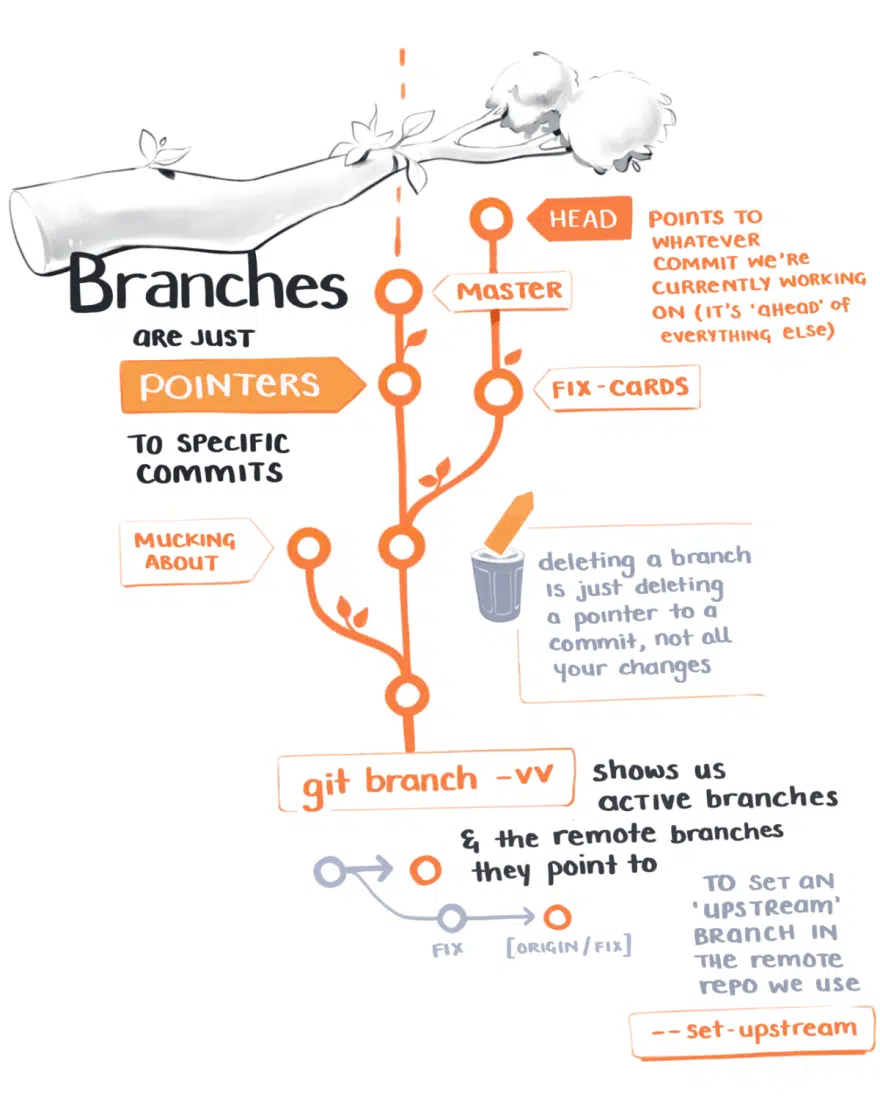 Branches
are just
POINTERS
TO SPECIFIC
COMMITS
HEAD
POINTS TO
WHATEVER
COMMIT WE'RE
CURRENTLY WORKING
ON (IT'S 'AHEAD' OF
EVERYTHING ELSE)
MASTER
FIX-CARDS
MUCKING
ABOUT
deleting a branch
is just deleting
a pointer to a
commit, not all
your changes
git branch -vv
shows us
active branches
& the remote branches
they point to
FIX
[ORIGIN/FIX]
TO SET AN
'UPSTREAM'
BRANCH IN
THE REMOTE
REPO WE USE
--set-upstream